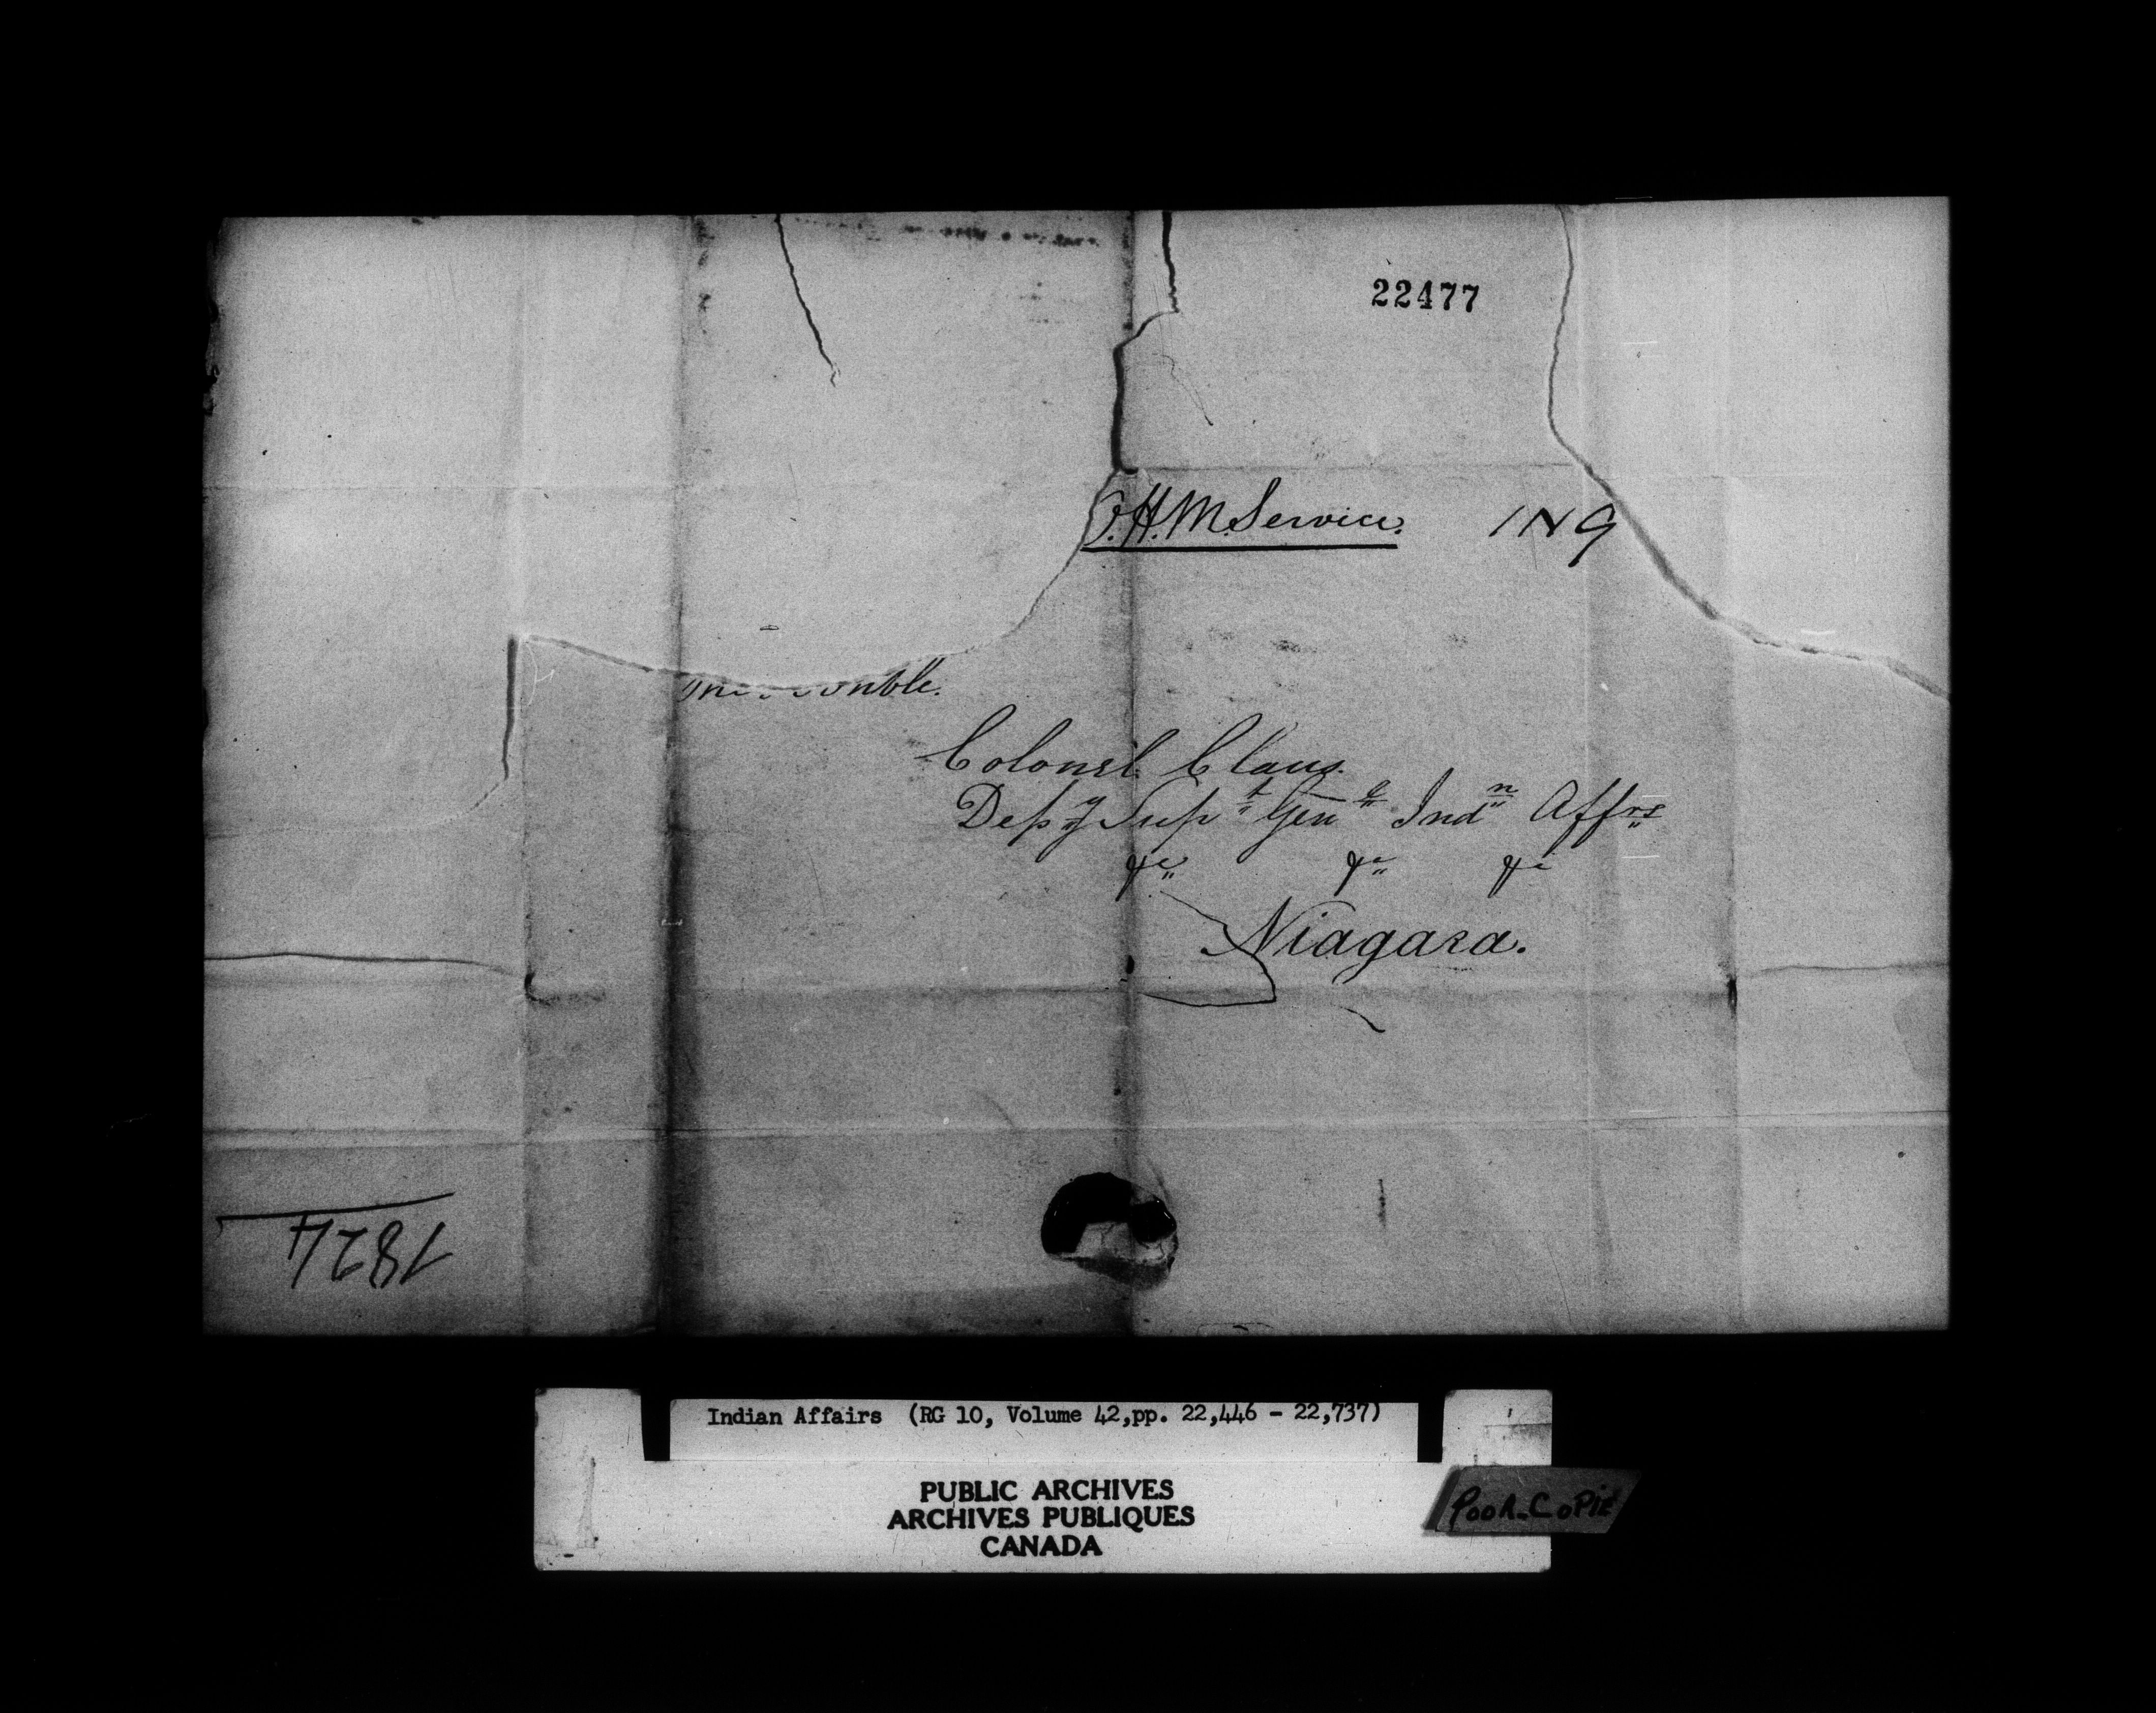 22477
O.H.M.Service. 1N9
Honble.
Colonel Claus.
Depy Supt Genl Indn Affrs
&c &c &c
Niagara.
1824
Indian Affairs (RG 10, Volume 42,pp. 22,446 - 22,737)
PUBLIC ARCHIVES
ARCHIVES PUBLIQUES
CANADA
POOR-COPIE